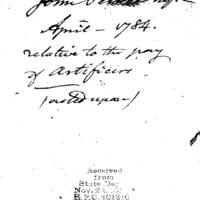 John
April - 1784.
relative to the pay
of Artificers
(acted upon)
Received
from
State Dep
Nov. 2
R.P.O. 401826